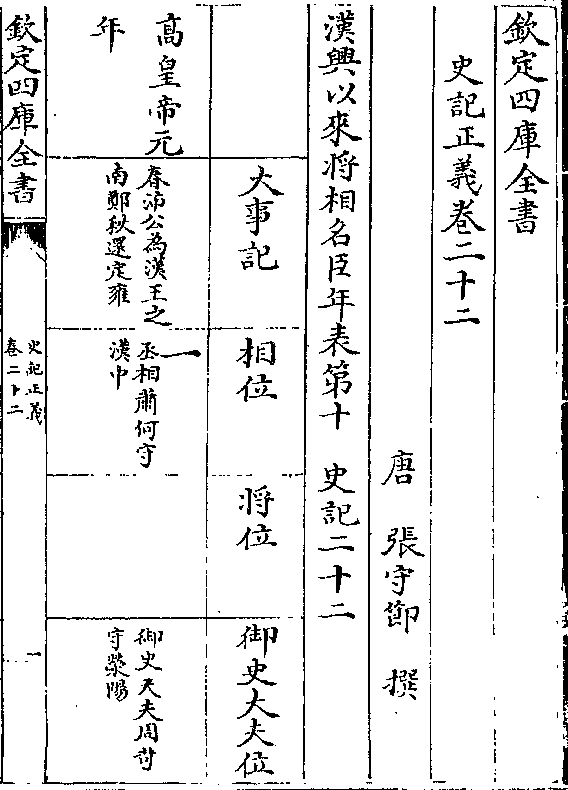 欽定四庫全書
史記正義卷二十二
唐 張守節 撰
漢興以來將相名臣年表第十 史記二十二
大事記
相位
將位
御史大夫位
高皇帝元
年
春沛公為漢王之
南鄭秋還定雍
一
丞相蕭何守
漢中
御史大夫周苛
守滎陽
欽定四庫全書
史記正義
卷二十二
一